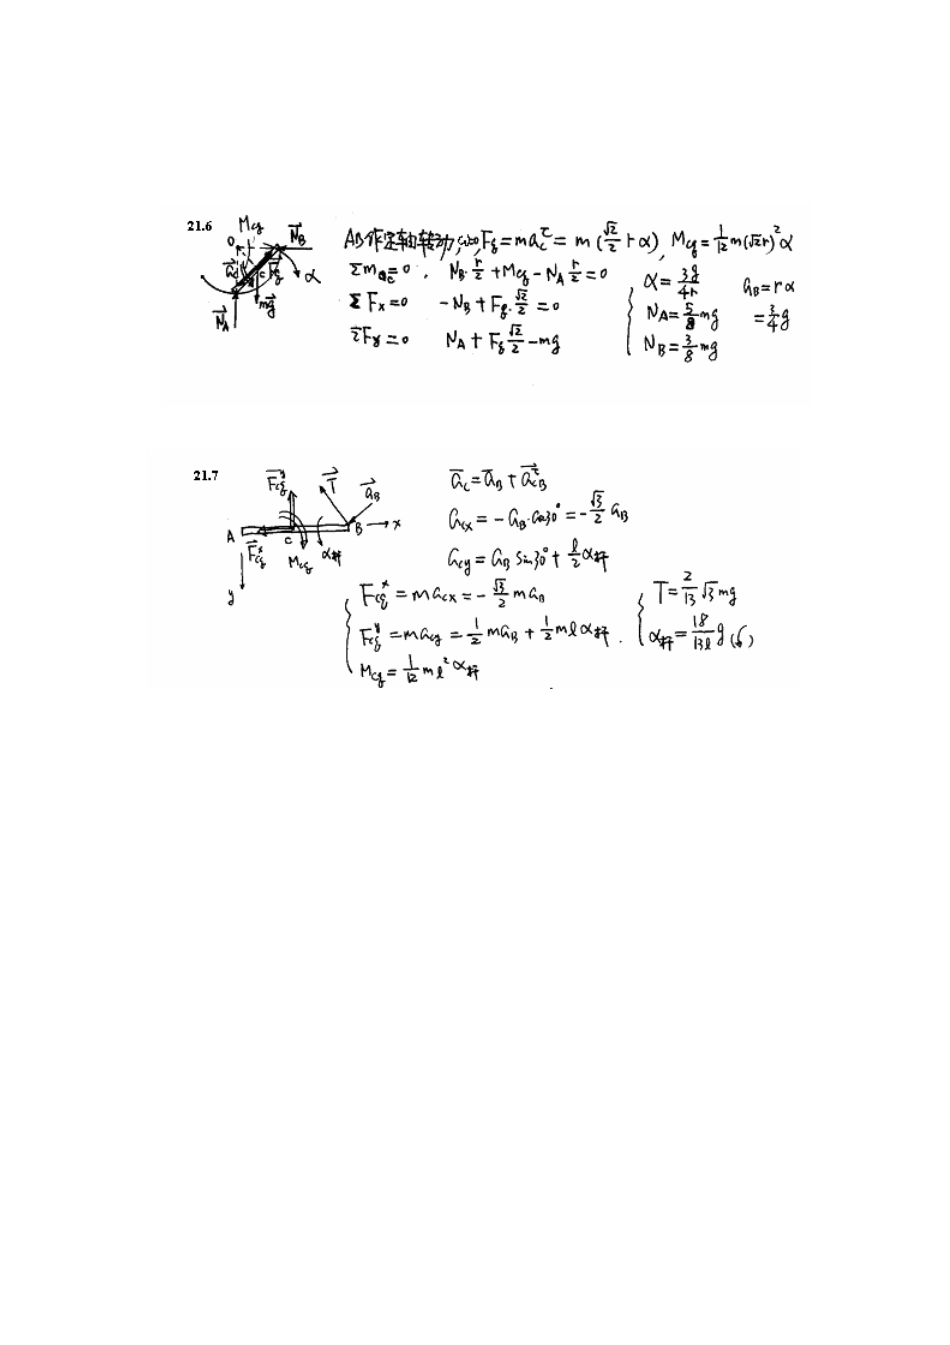 21.6
M_Cg
O N_B
a_C^τ C F_g α
mg
N_A
AB作定轴转动, ω=0, F_g = ma_C^τ = m(√2/2 rα), M_g = 1/12 m(√2r)²α
Σm_C = 0, N_B·r/2 + M_Cg − N_A r/2 = 0
ΣF_x = 0 −N_B + F_g·√2/2 = 0
ΣF_y = 0 N_A + F_g √2/2 − mg
α = 3g/4r a_B = rα
N_A = 5/8 mg = 3/4 g
N_B = 3/8 mg
21.7
F_Cg^y T a_B
A C B x
F_Cg^x M_Cg α杆
y
a_C = a_B + a_CB^τ
a_Cx = −a_B·cos30° = −√3/2 a_B
a_Cy = a_B sin30° + l/2 α杆
F_Cg^x = ma_Cx = −√3/2 ma_B
F_Cg^y = ma_Cy = 1/2 ma_B + 1/2 mlα杆.
M_Cg = 1/12 ml²α杆
T = 2/13 √3 mg
α杆 = 18/13l g